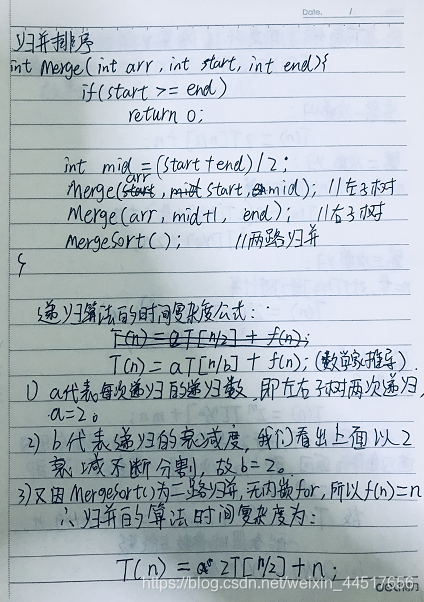 Date. /
归并排序
int Merge( int arr, int start, int end){
if(start >= end)
return 0;
int mid = (start+end)/2;
Merge(arr start, mid); //左子树
Merge(arr, mid+1, end); //右子树
MergeSort( ); //两路归并
}
递归算法的时间复杂度公式:
T(n) = aT[n/2] + f(n);
T(n) = aT[n/b] + f(n); (数学家推导).
1) a代表每次递归的递归数,即左右子树两次递归,
a=2。
2) b代表递归的衰减度,我们看出上面以2
衰减不断分割,故b=2。
3)又因MergeSort()为二路归并,无内嵌for,所以f(n)=n
∴归并的算法时间复杂度为:
T(n) = 2T[n/2]+n;
https://blog.csdn.net/weixin_44517656